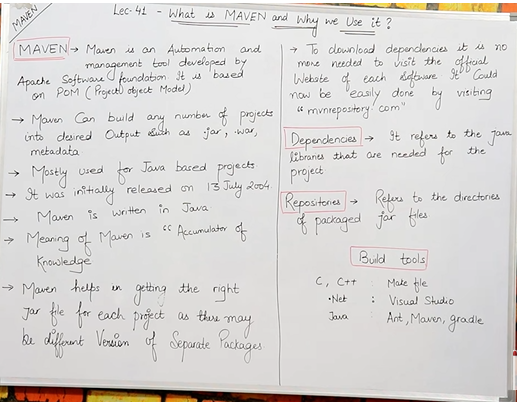 MAVEN
Lec-41 - What is MAVEN and Why we Use it?
MAVEN → Maven is an Automation and
management tool developed by
Apache Software foundation It is based
on POM (Project object Model)
→ Maven Can build any number of projects
into desired Output such as jar, war,
metadata
→ Mostly used for Java based projects.
→ It was initially released on 13 July 2004.
→ Maven is written in Java
→ Meaning of Maven is "Accumulator of
Knowledge
→ Maven helps in getting the right
Jar file for each project as there may
be different Version of Separate Packages
→ To download dependencies it is no
more needed to visit the official
Website of each software It Could
now be easily done by visiting
"mvnrepository.com"
Dependencies → It refers to the java
libraries that are needed for the
project
Repositories → Refers to the directories
of packaged jar files
Build tools
C, C++ : Make file
.Net : Visual Studio
Java : Ant, Maven, gradle